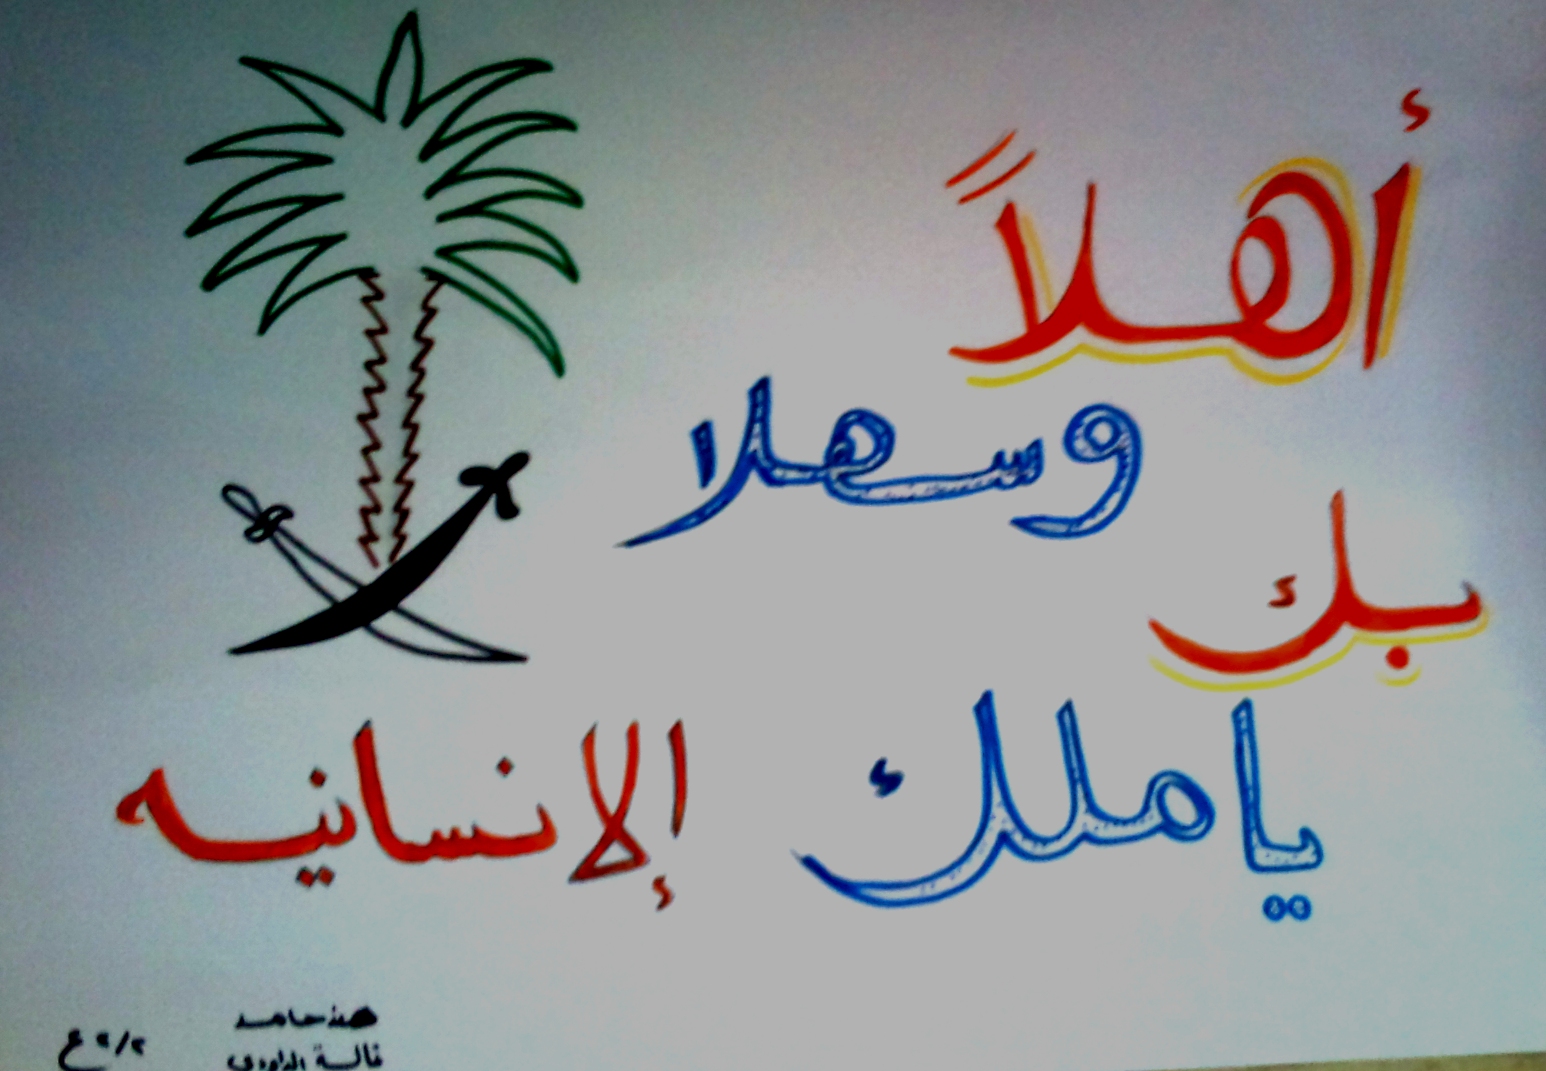 أهلاً
وسهلا
بك
يا ملك إلإنسانيه
هند حامد
٢/٢ ع